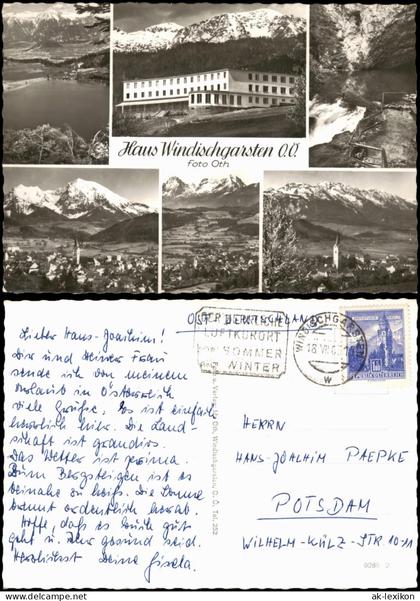 Haus Windischgarsten O.Ö.
Foto Oth
OST DEUTSCHLAND
Lieber Hans-Joachim!
Dir und Deiner Frau
sende ich von meinem
Urlaub in Österreich
viele Grüße. Es ist einfach
herrlich hier. Die Land-
schaft ist grandios.
Das Wetter ist prima.
Zum Bergsteigen ist es
beinahe zu heiß. Die Sonne
brennt ordentlich herab.
Hoffe, daß es Euch gut
geht u. Ihr gesund seid.
Herzlichst Deine Gisela.
DER BELIEBTE
LUFTKURORT
SOMMER
WINTER
WINDISCHGARSTEN
18.VII.
W
REPUBLIK ÖSTERREICH
Verlag Oth, Windischgarsten O.Ö. Tel. 252
HERRN
HANS-JOACHIM PAEPKE
POTSDAM
WILHELM-KÜLZ-STR 10-11